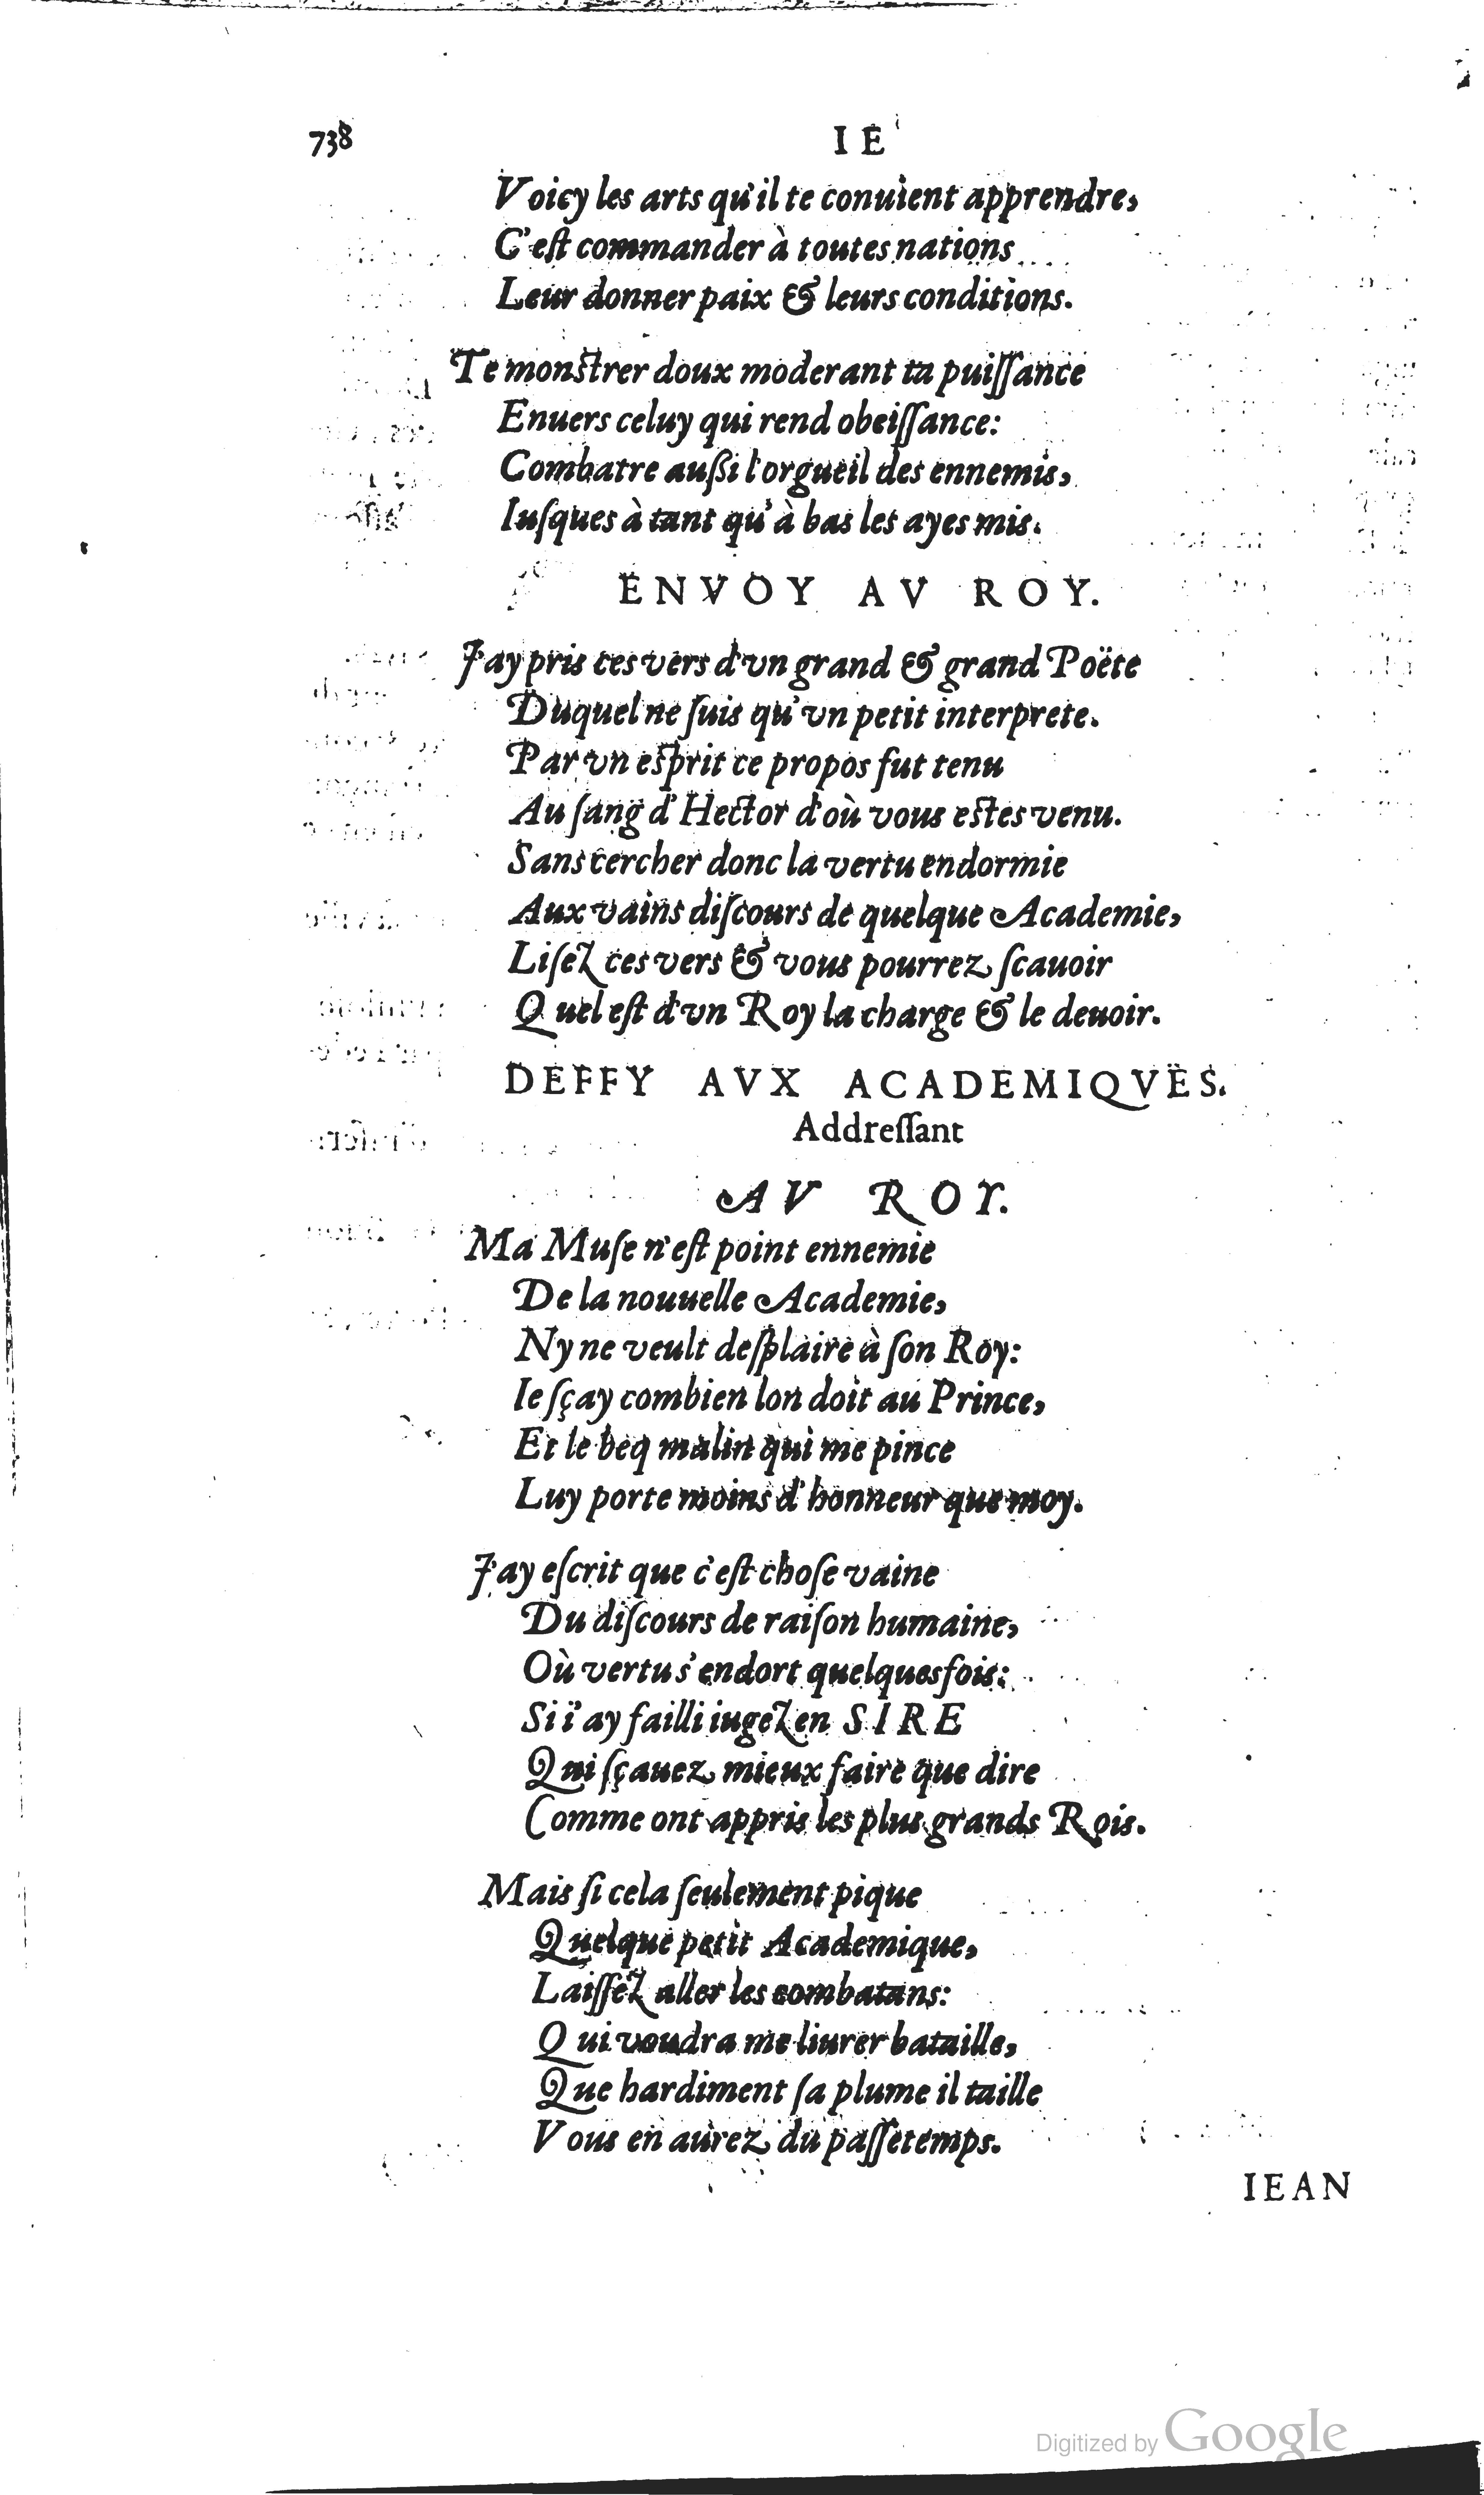 738 IE
Voicy les arts qu'il te conuient apprendre,
C'eſt commander à toutes nations
Leur donner paix & leurs conditions.
Te monſtrer doux moderant ta puiſſance
Enuers celuy qui rend obeiſſance:
Combatre auſsi l'orgueil des ennemis,
Iuſques à tant qu'à bas les ayes mis.
ENVOY AV ROY.
J'ay pris ces vers d'vn grand & grand Poëte
Duquel ne ſuis qu'vn petit interprete.
Par vn eſprit ce propos fut tenu
Au ſang d'Hector d'où vous eſtes venu.
Sans cercher donc la vertu endormie
Aux vains diſcours de quelque Academie,
Liſez ces vers & vous pourrez ſcauoir
Quel eſt d'vn Roy la charge & le deuoir.
DEFFY AVX ACADEMIQVES.
Addreſſant
AV ROY.
Ma Muſe n'eſt point ennemie
De la nouuelle Academie,
Ny ne veult deſplaire à ſon Roy:
Ie ſçay combien lon doit au Prince,
Et le beq malin qui me pince
Luy porte moins d'honneur que moy.
J'ay eſcrit que c'eſt choſe vaine
Du diſcours de raiſon humaine,
Où vertu s'endort quelquesfois:
Si i'ay failli iugez en SIRE
Qui ſçauez mieux faire que dire
Comme ont appris les plus grands Rois.
Mais ſi cela ſeulement pique
Quelque petit Academique,
Laiſſez aller les combatans:
Qui voudra me liurer bataille,
Que hardiment ſa plume il taille
Vous en aurez du paſſetemps.
IEAN
Digitized by Google